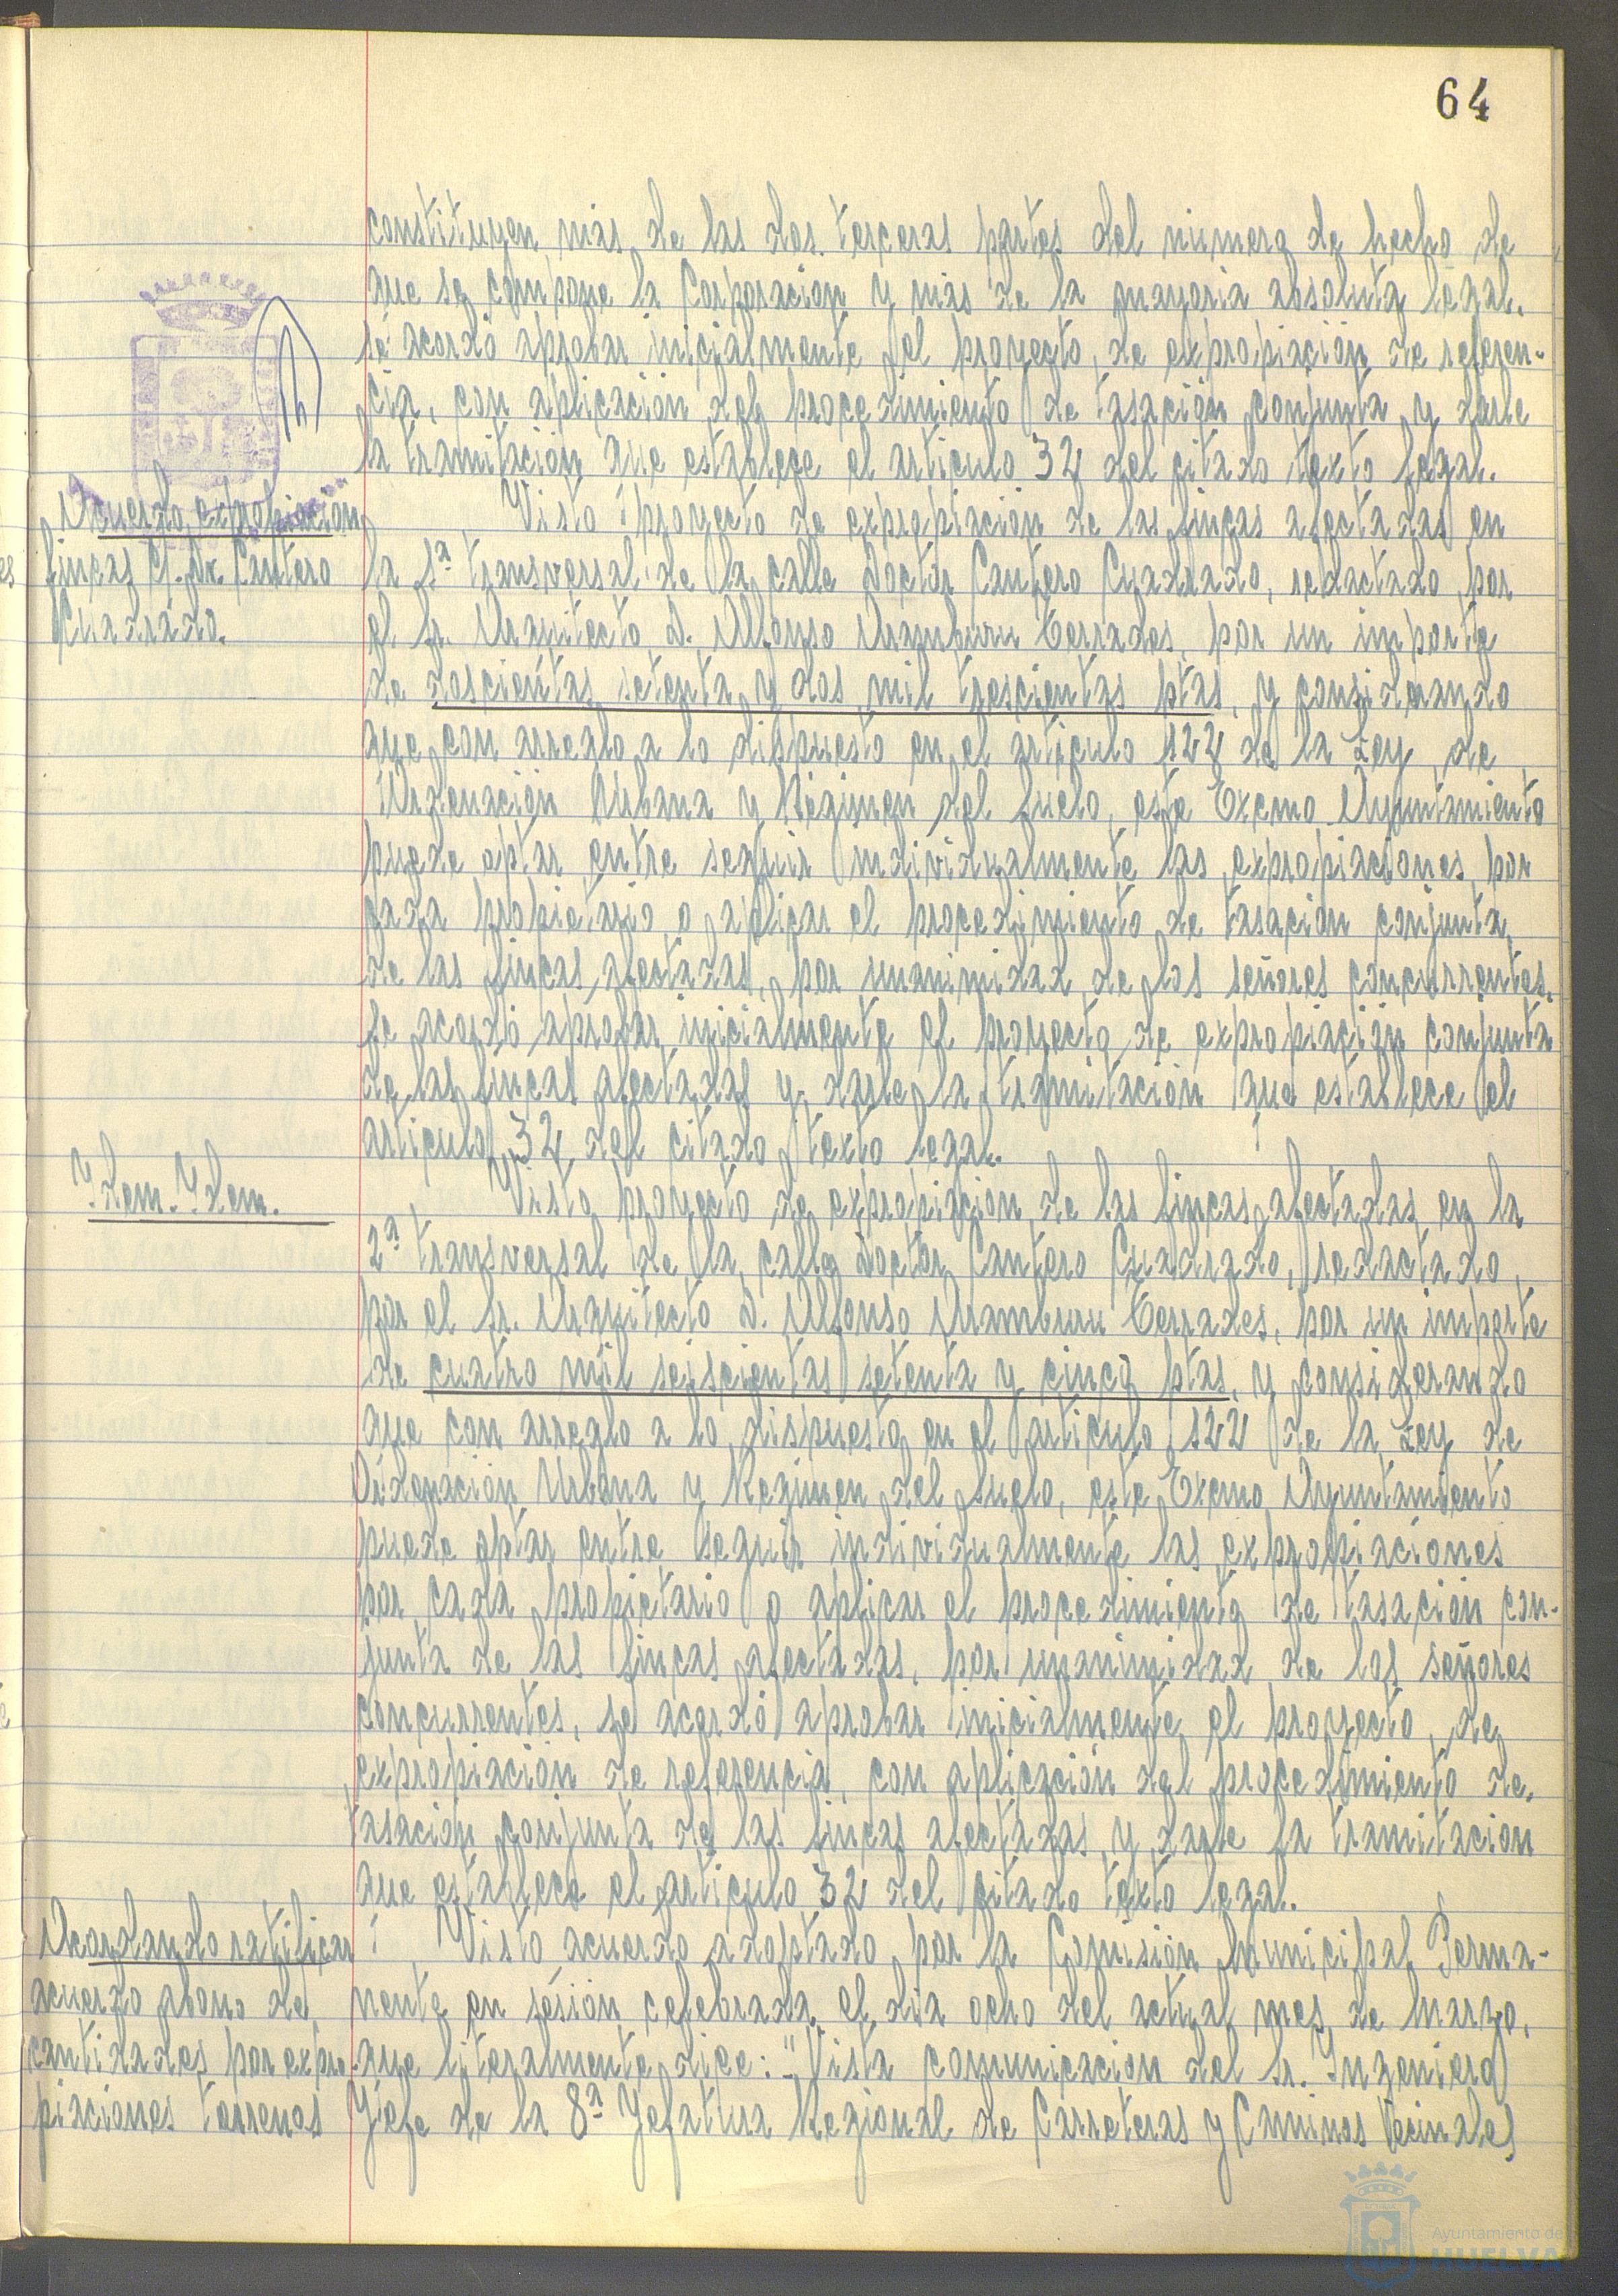 64
constituyen más de las dos terceras partes del número de hecho de
que se compone la Corporación y más de la mayoría absoluta legal.
se acordó aprobar inicialmente el proyecto, de expropiación de referen-
cia, con aplicación del procedimiento de tasación conjunta y darle
la tramitación que establece el artículo 32 del citado texto legal.
Acuerdo expropiación
fincas C/. Dr. Cantero
Cuadrado.
Visto proyecto de expropiación de las fincas afectadas en
la 1ª transversal de la calle Doctor Cantero Cuadrado, redactado por
el Sr. Arquitecto D. Alfonso Aramburu Terrades, por un importe
de doscientas setenta y dos mil trescientas ptas, y considerando
que con arreglo a lo dispuesto en el artículo 122 de la Ley de
Ordenación Urbana y Régimen del Suelo, este Excmo Ayuntamiento
puede optar entre seguir individualmente las expropiaciones por
cada propietario o aplicar el procedimiento de tasación conjunta
de las fincas afectadas, por unanimidad de los señores concurrentes.
se acordó aprobar inicialmente el proyecto de expropiación conjunta
de las fincas afectadas y darle la tramitación que establece el
artículo 32 del citado texto legal.
Idem. Idem.
Visto proyecto de expropiación de las fincas afectadas en la
2ª transversal de la calle Doctor Cantero Cuadrado, redactado
por el Sr. Arquitecto D. Alfonso Aramburu Terrades, por un importe
de cuatro mil seiscientas setenta y cinco ptas, y considerando
que con arreglo a lo dispuesto en el artículo 122 de la Ley de
Ordenación Urbana y Régimen del Suelo, este Excmo Ayuntamiento
puede optar entre seguir individualmente las expropiaciones
por cada propietario o aplicar el procedimiento de tasación con-
junta de las fincas afectadas, por unanimidad de los señores
concurrentes, se acordó aprobar inicialmente el proyecto de
expropiación de referencia, con aplicación del procedimiento de
tasación conjunta de las fincas afectadas y darle la tramitación
que establece el artículo 32 del citado texto legal.
Acordando ratificar
acuerdo abono de
cantidades por expro-
piaciones terrenos
Visto acuerdo adoptado por la Comisión Municipal Perma-
nente en sesión celebrada el día ocho del actual mes de Marzo,
que literalmente dice: "Vista comunicación del Sr. Ingeniero
Jefe de la 8ª Jefatura Regional de Carreteras y Caminos Vecinales
Ayuntamiento de
HUELVA